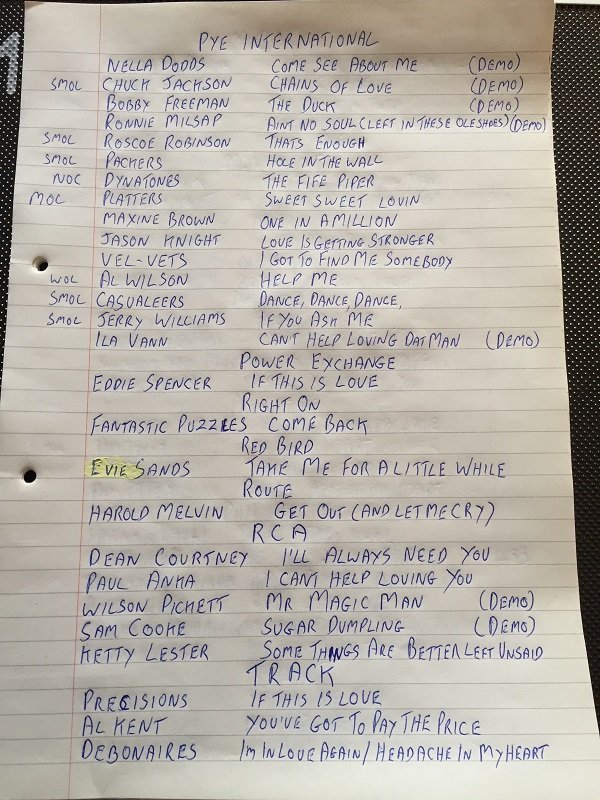 PYE INTERNATIONAL
NELLA DODDS COME SEE ABOUT ME (DEMO)
SMOL CHUCK JACKSON CHAINS OF LOVE (DEMO)
BOBBY FREEMAN THE DUCK (DEMO)
RONNIE MILSAP AINT NO SOUL (LEFT IN THESE OLE SHOES) (DEMO)
SMOL ROSCOE ROBINSON THATS ENOUGH
SMOL PACKERS HOLE IN THE WALL
NOC DYNATONES THE FIFE PIPER
MOL PLATTERS SWEET SWEET LOVIN
MAXINE BROWN ONE IN A MILLION
JASON KNIGHT LOVE IS GETTING STRONGER
VEL-VETS I GOT TO FIND ME SOMEBODY
WOL AL WILSON HELP ME
SMOL CASUALEERS DANCE, DANCE, DANCE,
SMOL JERRY WILLIAMS IF YOU ASK ME
ILA VANN CANT HELP LOVING DAT MAN (DEMO)
POWER EXCHANGE
EDDIE SPENCER IF THIS IS LOVE
RIGHT ON
FANTASTIC PUZZLES COME BACK
RED BIRD
EVIE SANDS TAKE ME FOR A LITTLE WHILE
ROUTE
HAROLD MELVIN GET OUT (AND LET ME CRY)
RCA
DEAN COURTNEY I'LL ALWAYS NEED YOU
PAUL ANKA I CANT HELP LOVING YOU
WILSON PICKETT MR MAGIC MAN (DEMO)
SAM COOKE SUGAR DUMPLING (DEMO)
KETTY LESTER SOME THINGS ARE BETTER LEFT UNSAID
TRACK
PRECISIONS IF THIS IS LOVE
AL KENT YOU'VE GOT TO PAY THE PRICE
DEBONAIRES I'M IN LOVE AGAIN / HEADACHE IN MY HEART